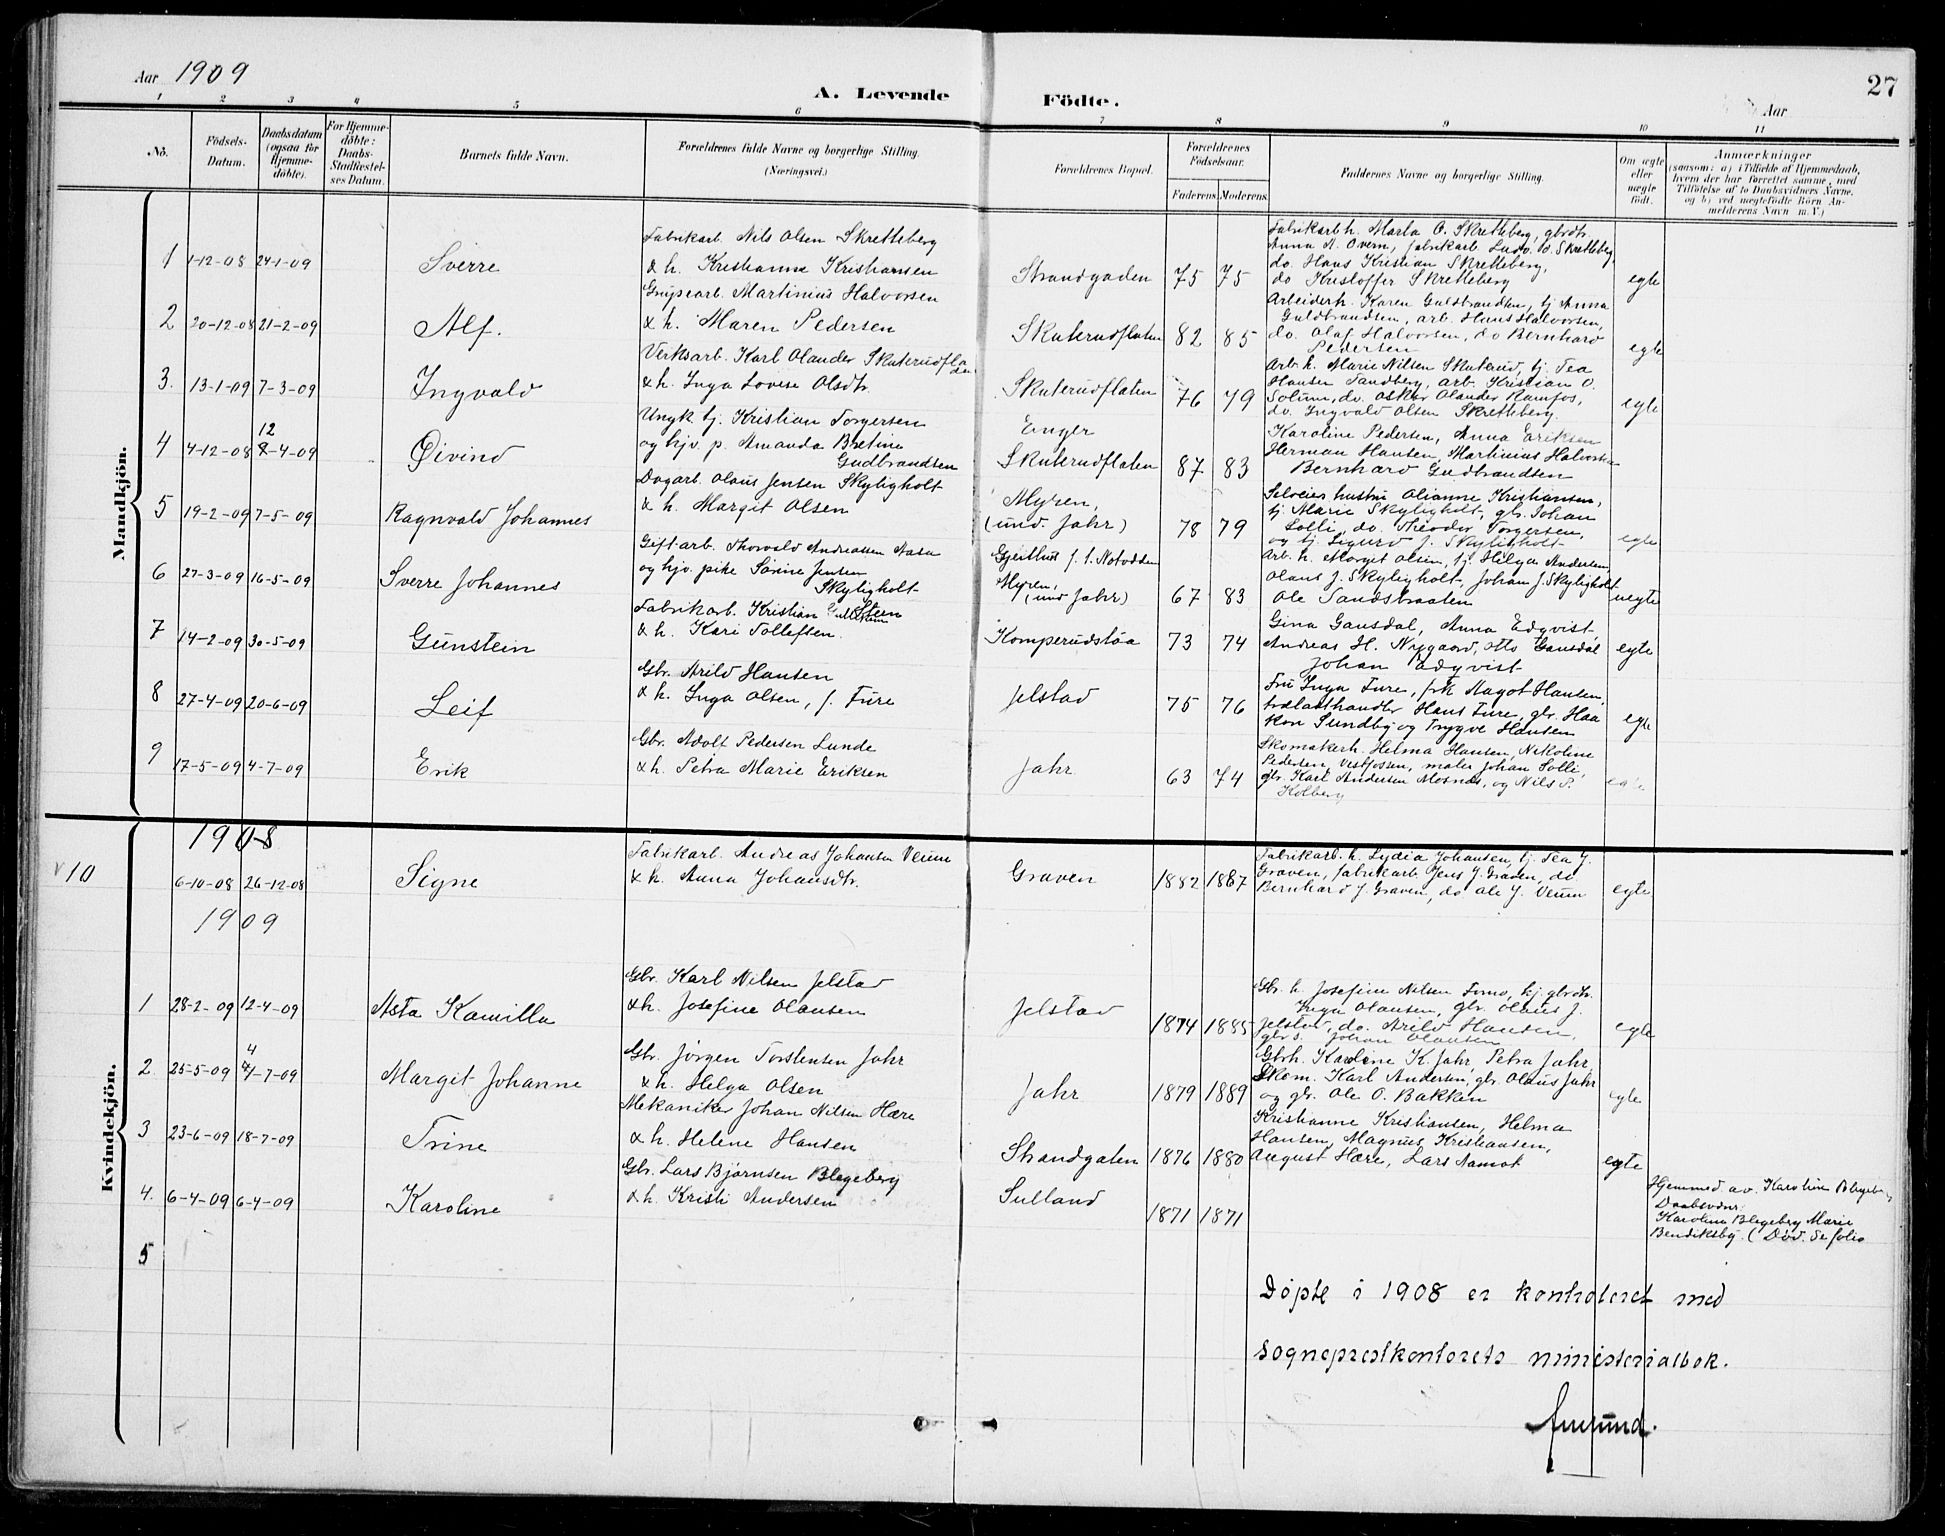 Aar 1909
A. Levende Födte.
Aar
27
1 2 3 4 5 6 7 8 9 10 11
No.
Födsels-Datum.
Daabsdatum (ogsaa for Hjemme-döbte).
For Hjemme-döbte: Daabs-Stadfæstel-ses Datum.
Barnets fulde Navn.
Forældrenes fulde Navne og borgerlige Stilling. (Næringsvei.)
Forældrenes Bopæl.
Forældrenes Födselsaar.
Faderens. Moderens.
Faddernes Navne og borgerlige Stilling.
Om ægte eller uægte födt.
Anmærkninger
(saasom: a) i Tilfælde af Hjemmedaab,
hvem der har forrettet samme, med
Tilföielse af to Daabsvidners Navne,
og b) ved uægtefödte Börn An-
melderens Navn m. V.)
Mandkjön.
1 1-12-08 24-1-09 Sverre
Fabrikarb. Nils Olsen Skretteberg
& h. Kristianne Kristiansen
Strandgaden 75 75
Fabrikarb h. Marta O. Skretteberg, gbrdtr.
Anna A. Overn, fabrikarb. Ludv. O. Skretteberg,
do. Hans Kristian Skretteberg,
do Kristoffer Skretteberg
egte
2 20-12-08 21-2-09 Alf.
Grubearb. Martinius Halvorsen
& h. Maren Pedersen
Skuterudflaten 82 85
Arbeiderh. Karen Guldbrandsen, tj Anna
Guldbrandsen, arb. Hans Halvorsen,
do. Olaf Halvorsen, do Bernhard
Pedersen
egte
3. 13-1-09 7-3-09 Ingvald
Verksarb. Karl Olander Skuterudfla
den
& h. Inga Lovise Olsdtr.
Skuterudflaten 76 79
Arb. h. Marie Nilsen Skuterud, tj. Tea
Hansen Sandberg, arb. Kristian O.
Solum, do. Oskar Olander Ramfos,
do. Ingvald Olsen Skretteberg.
egte
4 4-12-08 12 4-09 Øivind
Ungk. tj. Kristian Torgersen
og hjv. p. Amanda Bretine
Gudbrandsen
Enger
Skuterudflaten 87 83
Karoline Pedersen, Anna Eriksen
Herman Hansen, Martinius Halvorsen
Bernhard Gudbrandsen
5 19-2-09 7-5-09 Ragnvald Johannes
Dagarb. Olaus Jensen Skyligholt
& h. Margit Olsen
Myren,
(und. Jahr) 78 79
Selveier hustru Olianne Kristiansen,
tj. Marie Skyligholt, gbr. Johan
Solli, do. Theodor Torgersen,
og tj. Sigurd J. Skyligholt
egte
6 27-3-09 16-5-09 Sverre Johannes
Gift arb. Thorvald Andreassen
og hjv. pike Sørine Jensen
Skyligholt
Gjeithus f. t. Notodden
Myren,
(und Jahr) 67 83
Arb. h. Margit Olsen, tj. Helga Andersen
Olaus J. Skyligholt, Johan J. Skyligholt
Ole Sandsbraaten
uegte
7 14-2-09 30-5-09 Gunstein
Fabrikarb. Kristian
Steen
& h. Kari Tollefsen.
Komperudstøa 73 74
Gina Gausdal, Anna Edqvist,
Andreas H. Nygaard, Otto Gausdal
Johan Edqvist
egte
8 27-4-09 20-6-09 Leif
Gbr. Arild Hansen
& h. Inga Olsen, f. Fure
Jelstad 75 76
Fru Inga Fure, frk Magot Hansen,
trælasthandler Hans Fure, gbr. Haa
kon Sundby og Trygve Hansen
egte
9 17-5-09 4-7-09 Erik
Gbr. Adolf Pedersen Lunde
& h. Petra Marie Eriksen
Jahr 63 74
Skomakerh. Helma Hansen, Nikoline
Pedersen, Vestfossen, maler Johan Solli,
gbr. Karl Andersen Mosnæs, og Nils P.
Kolberg
egte
1908
v 10 6-10-08 26-12-08 Signe
Fabrikarb. Andreas Johansen Veum
& h. Anna Johansdtr.
Graven 1882 1887
Fabrikarb. h. Lydia Johansen, tj. Tea J.
Graven, fabrikarb Jens J. Graven, do
Bernhard J. Graven, do. Ole J. Veum
egte
1909
Kvindekjön.
1 28-2-09 12-4-09 Asta Kamilla
Gbr. Karl Nilsen Jelstad
& h. Josefine Olausen
Jelstad 1874 1885
Gbr. h. Josefine Nilsen Fomo, hj. gbrdtr.
Inga Olausen, gbr. Olaus J.
Jelstad, do. Arild Hansen,
gbrs. Johan Olausen
egte
2. 25-5-09 4-7-09 Margit Johanne
Gbr. Jørgen Torstensen Jahr
& h. Helga Olsen
Jahr 1879 1889
Gbrh. Karoline K. Jahr, Petra Jahr,
Skom. Karl Andersen, gbr. Olaus Jahr
og gbr. Ole O. Bakken
egte
3 23-6-09 18-7-09 Trine
Mekaniker Johan Nilsen Hære
& h. Helene Hansen
Strandgaten 1876 1880
Kristianne Kristiansen, Helma
Hansen, Magnus Kristiansen,
August Hære, Lars Aamot
egte
4. 6-4-09 6-4-09 Karoline
Gbr. Lars Bjørnsen Blegeberg
& h. Kristi Andersen
Sulland 1871 1871
Hjemmed. av. Karoline Blegeberg
Daabsvidner:
Karoline Blegeberg Marie
Bendiksby. (Død. Se folio
5
Døpte i 1908 er kontroleret med
sogneprestkontorets ministerialbok.